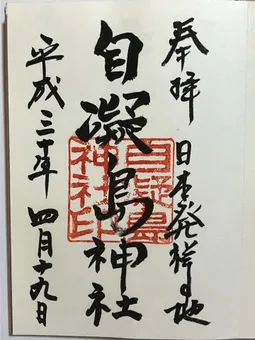 奉拝 日本発祥の地
自凝島神社
平成三十年 四月十九日
自凝島
神社印